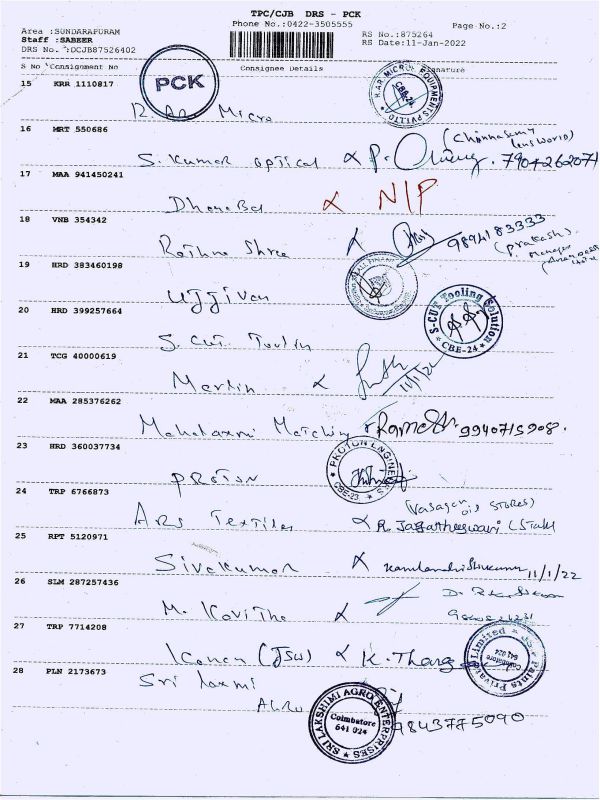 TPC/CJB DRS - PCK
Phone No.:0422-3505555
Page No.:2
Area :SUNDARAPURAM
Staff :SABEER
DRS No. :DCJB87526402
RS No.:875264
RS Date:11-Jan-2022
S No Consignment No Consignee Details Signature
PCK
15 KRR 1110817
R.AR Micro
KAR MICRO EQUIPMENTS PVT.LTD CBE-24
16 MRT 550686
S. Kumar optical
(Chinnasamy lensworld)
7904262071
17 MAA 941450241
Dhanabal
NIP
18 VNB 354342
Rathna Shree
9894183333
(Prakash)
Manager
19 HRD 383460198
Ujjivan
20 HRD 399257664
S. Cut. Toolin
S-CUT Tooling Solution CBE-24
21 TCG 40000619
Merlin
11/1/22
22 MAA 285376262
Mahalaxmi Matching
Ramesh. 9940715908.
23 HRD 360037734
PROTON
PROTON ENGINEERS CBE-23
24 TRP 6766873
ARS Textiles
STORES)
R. Jagatheeswari (Staff
25 RPT 5120971
Sivakumar
11/1/22
26 SLM 287257436
M. Kavitha
27 TRP 7714208
(JSW)
K. Thang
JSW Paints Private Limited Coimbatore 641 024
28 PLN 2173673
Sri laxmi
AGRO
SRI LAKSHIMI AGRO ENTERPRISES Coimbatore 641 024
9843775090